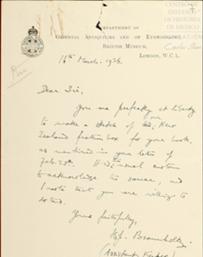 DEPARTMENT OF
ORIENTAL ANTIQUITIES AND OF ETHNOGRAPHY,
BRITISH MUSEUM,
LONDON, W.C.1.
16th March, 1936.
Dear Sir,
You are perfectly at liberty
to make a sketch of the New
Zealand feather box for your book,
as mentioned in your letter of
Feb. 28th. It is usual custom
to acknowledge the source, and
I note that you are willing to
do this.
Yours faithfully,
(Assistant Keeper)